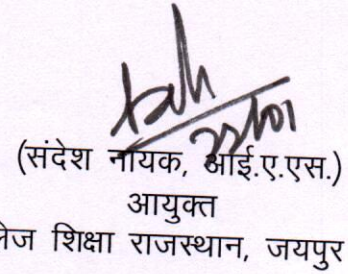 (संदेश नायक, आई.ए.एस.)
आयुक्त
शिक्षा राजस्थान, जयपुर